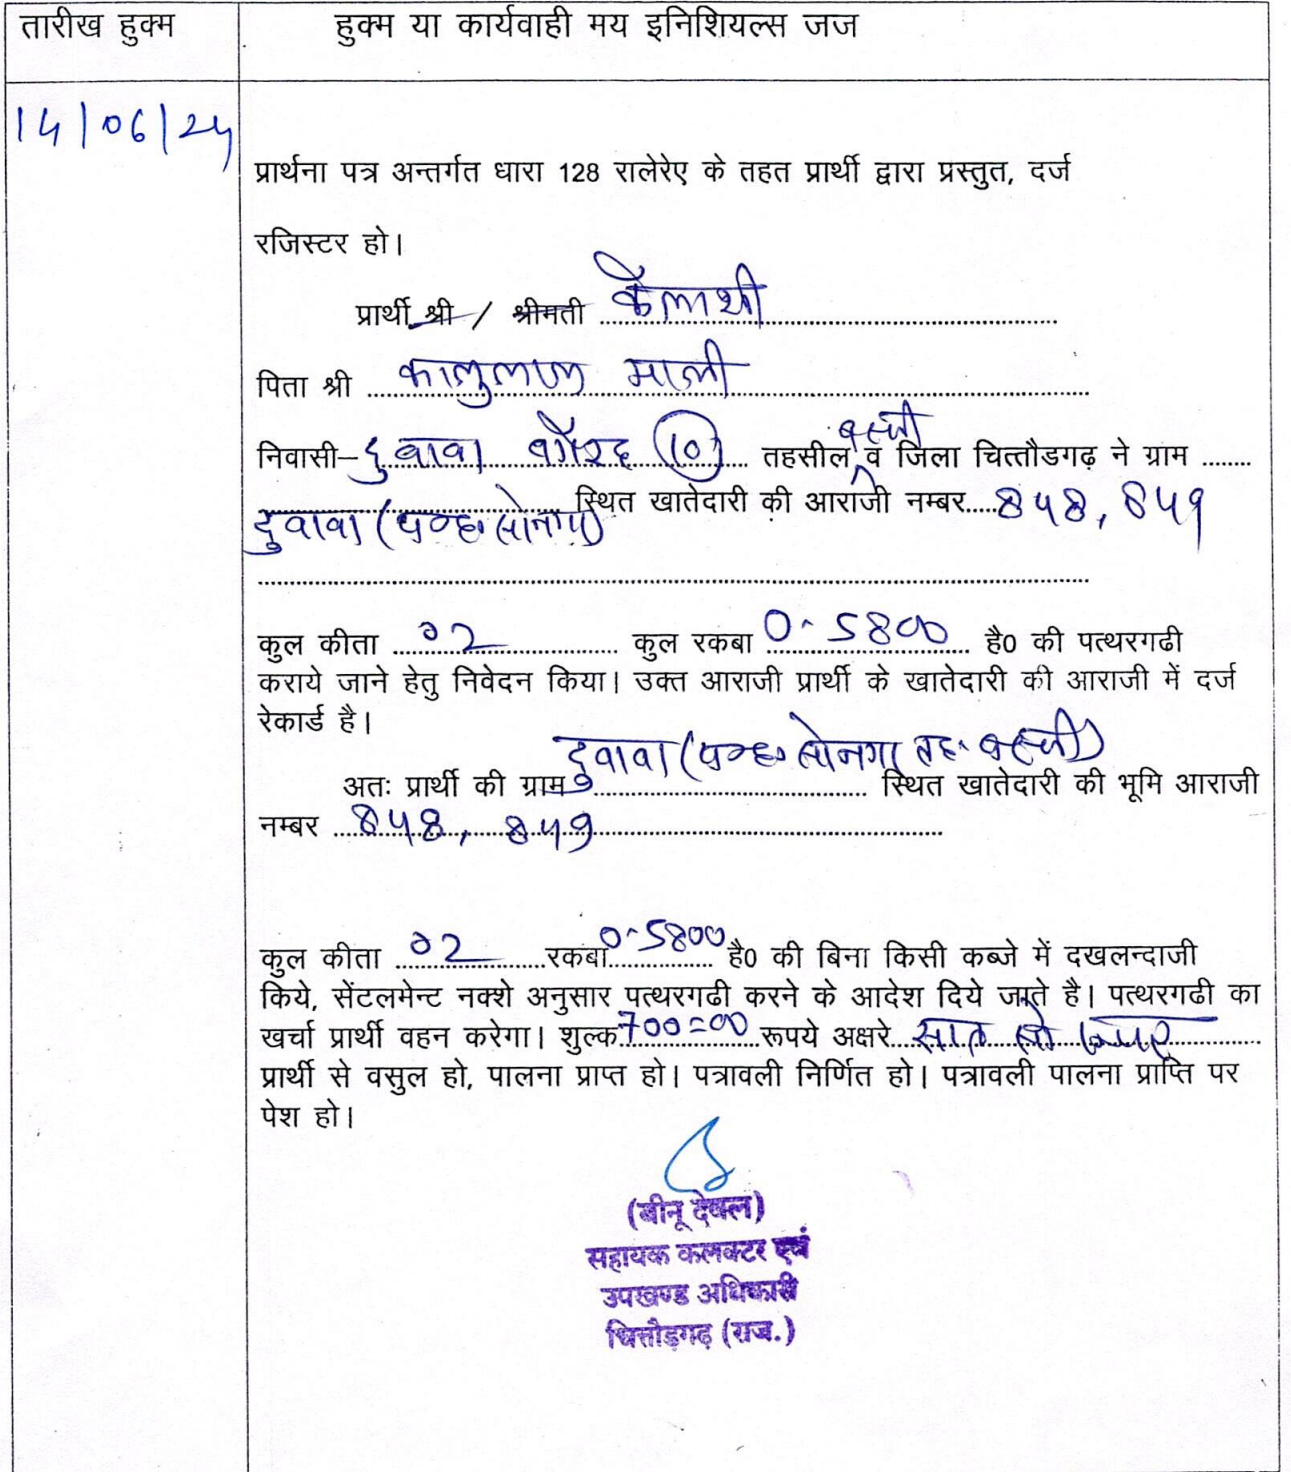 तारीख हुक्म
हुक्म या कार्यवाही मय इनिशियल्स जज
14/06/24
प्रार्थना पत्र अन्तर्गत धारा 128 रालेरेए के तहत प्रार्थी द्वारा प्रस्तुत, दर्ज
रजिस्टर हो।
प्रार्थी श्री / श्रीमती कैलाशी
पिता श्री कालुलाल माली
निवासी– दुवावा वगैरह (10) तहसील बस्सी व जिला चित्तौडगढ़ ने ग्राम
दुवावा (प०ह० सोनगर) स्थित खातेदारी की आराजी नम्बर 848, 849
कुल कीता 02 कुल रकबा 0.5800 है0 की पत्थरगढी
कराये जाने हेतु निवेदन किया। उक्त आराजी प्रार्थी के खातेदारी की आराजी में दर्ज
रेकार्ड है।
अतः प्रार्थी की ग्राम दुवावा (प०ह० सोनगर तह. बस्सी) स्थित खातेदारी की भूमि आराजी
नम्बर 848, 849
कुल कीता 02 रकबा 0.5800 है0 की बिना किसी कब्जे में दखलन्दाजी
किये, सेंटलमेन्ट नक्शे अनुसार पत्थरगढी करने के आदेश दिये जाते है। पत्थरगढी का
खर्चा प्रार्थी वहन करेगा। शुल्क 700=00 रूपये अक्षरे सात सो रूपए
प्रार्थी से वसुल हो, पालना प्राप्त हो। पत्रावली निर्णित हो। पत्रावली पालना प्राप्ति पर
पेश हो।
(बीनू देवल)
सहायक कलक्टर एवं
उपखण्ड अधिकारी
चित्तौड़गढ़ (राज.)